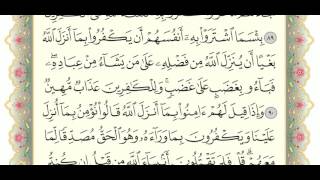 ٨٩ بِئْسَمَا اشْتَرَوْا بِهِ أَنفُسَهُمْ أَن يَكْفُرُوا بِمَا أَنزَلَ اللَّهُ
بَغْيًا أَن يُنَزِّلَ اللَّهُ مِن فَضْلِهِ عَلَىٰ مَن يَشَاءُ مِنْ عِبَادِهِ
فَبَاءُو بِغَضَبٍ عَلَىٰ غَضَبٍ وَلِلْكَٰفِرِينَ عَذَابٌ مُّهِينٌ
٩٠ وَإِذَا قِيلَ لَهُمْ ءَامِنُوا بِمَا أَنزَلَ اللَّهُ قَالُوا نُؤْمِنُ بِمَا أُنزِلَ
عَلَيْنَا وَيَكْفُرُونَ بِمَا وَرَاءَهُ وَهُوَ الْحَقُّ مُصَدِّقًا لِّمَا
مَعَهُمْ قُلْ فَلِمَ تَقْتُلُونَ أَنبِيَاءَ اللَّهِ مِن قَبْلُ إِن كُنتُم